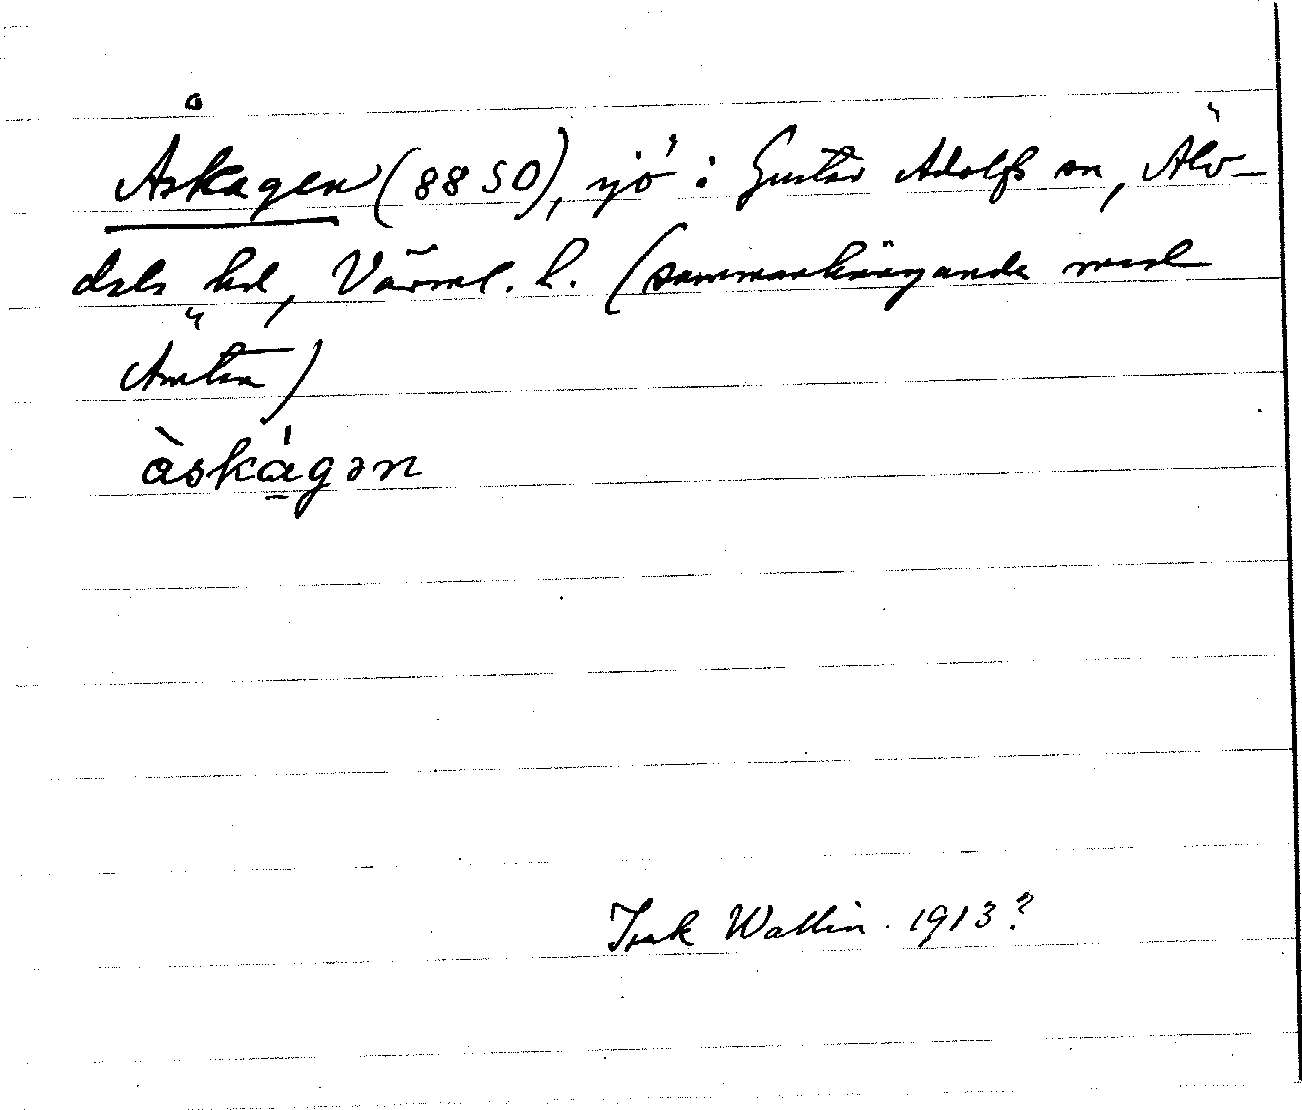 Åskagen (8850), sjö i Gustav Adolfs sn, Älv-
dals hd, Värml. l. (sammanhängande med
Ämten)
àskágən
Isak Wallin. 1913?